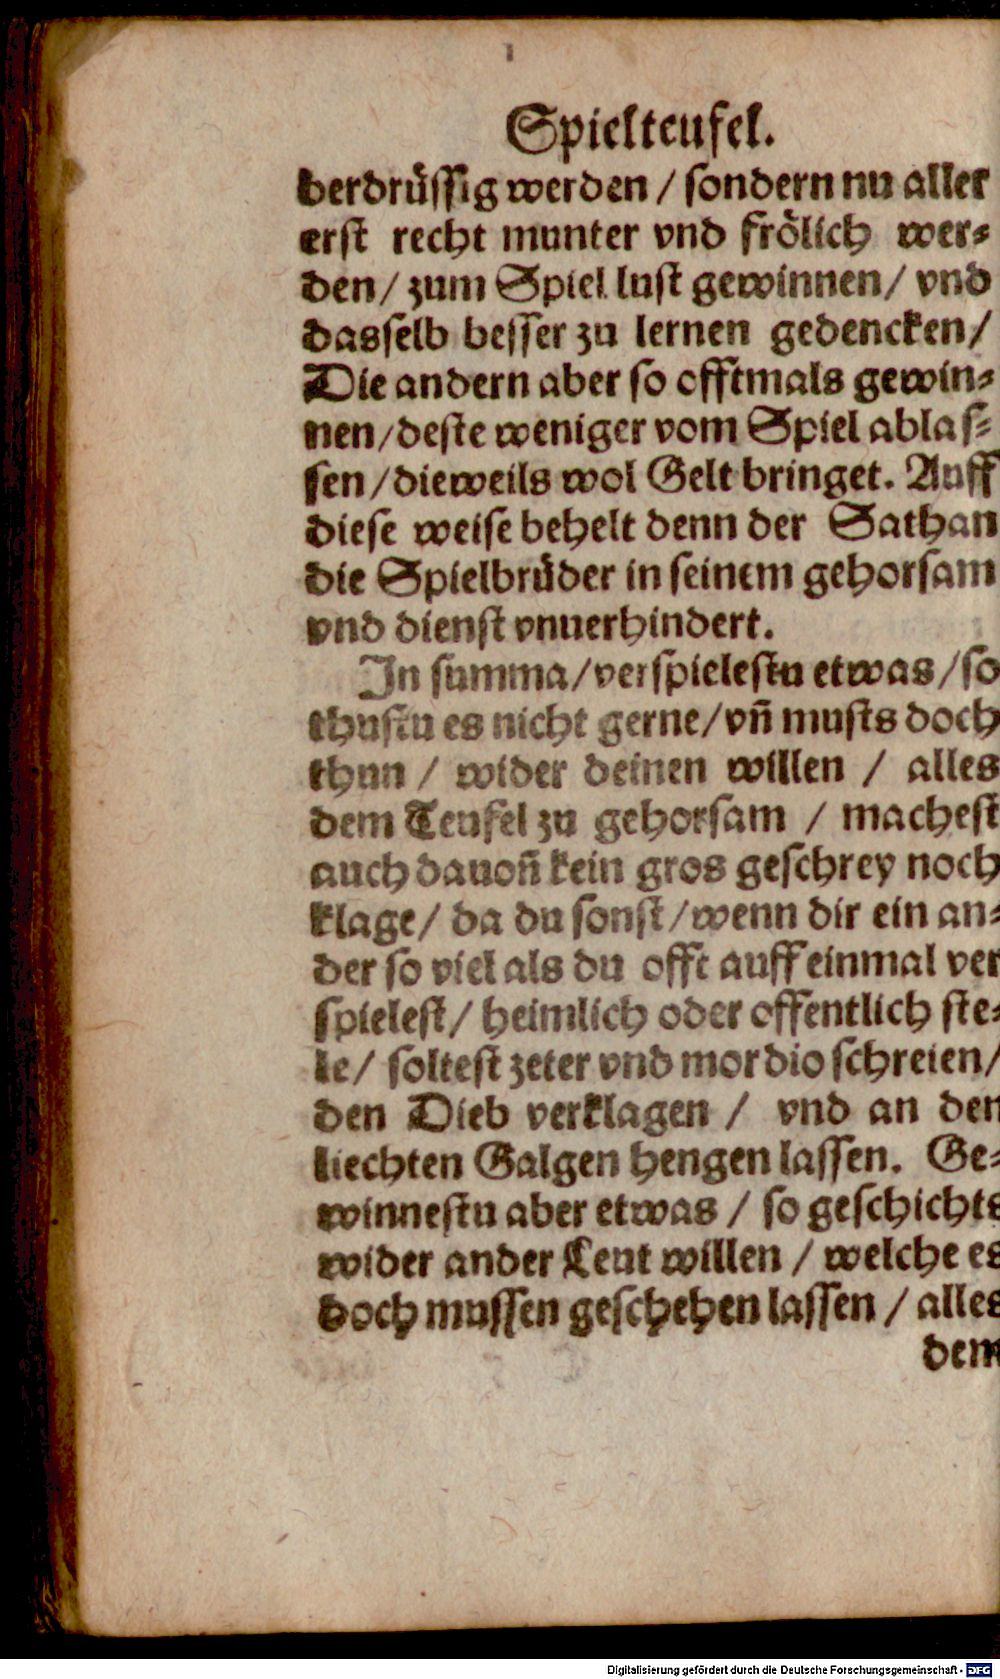 Spielteufel.
berdrüſſig werden / ſondern nu aller
erſt recht munter vnd froͤlich wer⸗
den / zum Spiel luſt gewinnen / vnd
dasſelb beſſer zu lernen gedencken /
Die andern aber ſo offtmals gewin⸗
nen / deſte weniger vom Spiel ablaſ⸗
ſen / dieweils wol Gelt bringet. Auff
dieſe weiſe behelt denn der Sathan
die Spielbruͤder in ſeinem gehorſam
vnd dienſt vnuerhindert.
In ſumma / verſpieleſtu etwas / ſo
thuſtu es nicht gerne / vñ muſts doch
thun / wider deinen willen / alles
dem Teufel zu gehorſam / macheſt
auch dauoñ kein gros geſchrey noch
klage / da du ſonſt / wenn dir ein an⸗
der ſo viel als du offt auff einmal ver
ſpieleſt / heimlich oder offentlich ſte⸗
le / ſolteſt zeter vnd mordio ſchreien /
den Dieb verklagen / vnd an den
liechten Galgen hengen laſſen. Ge⸗
winneſtu aber etwas / ſo geſchichts
wider ander Leut willen / welche es
doch muſſen geſchehen laſſen / alles
dem
Digitalisierung gefördert durch die Deutsche Forschungsgemeinschaft - DFG